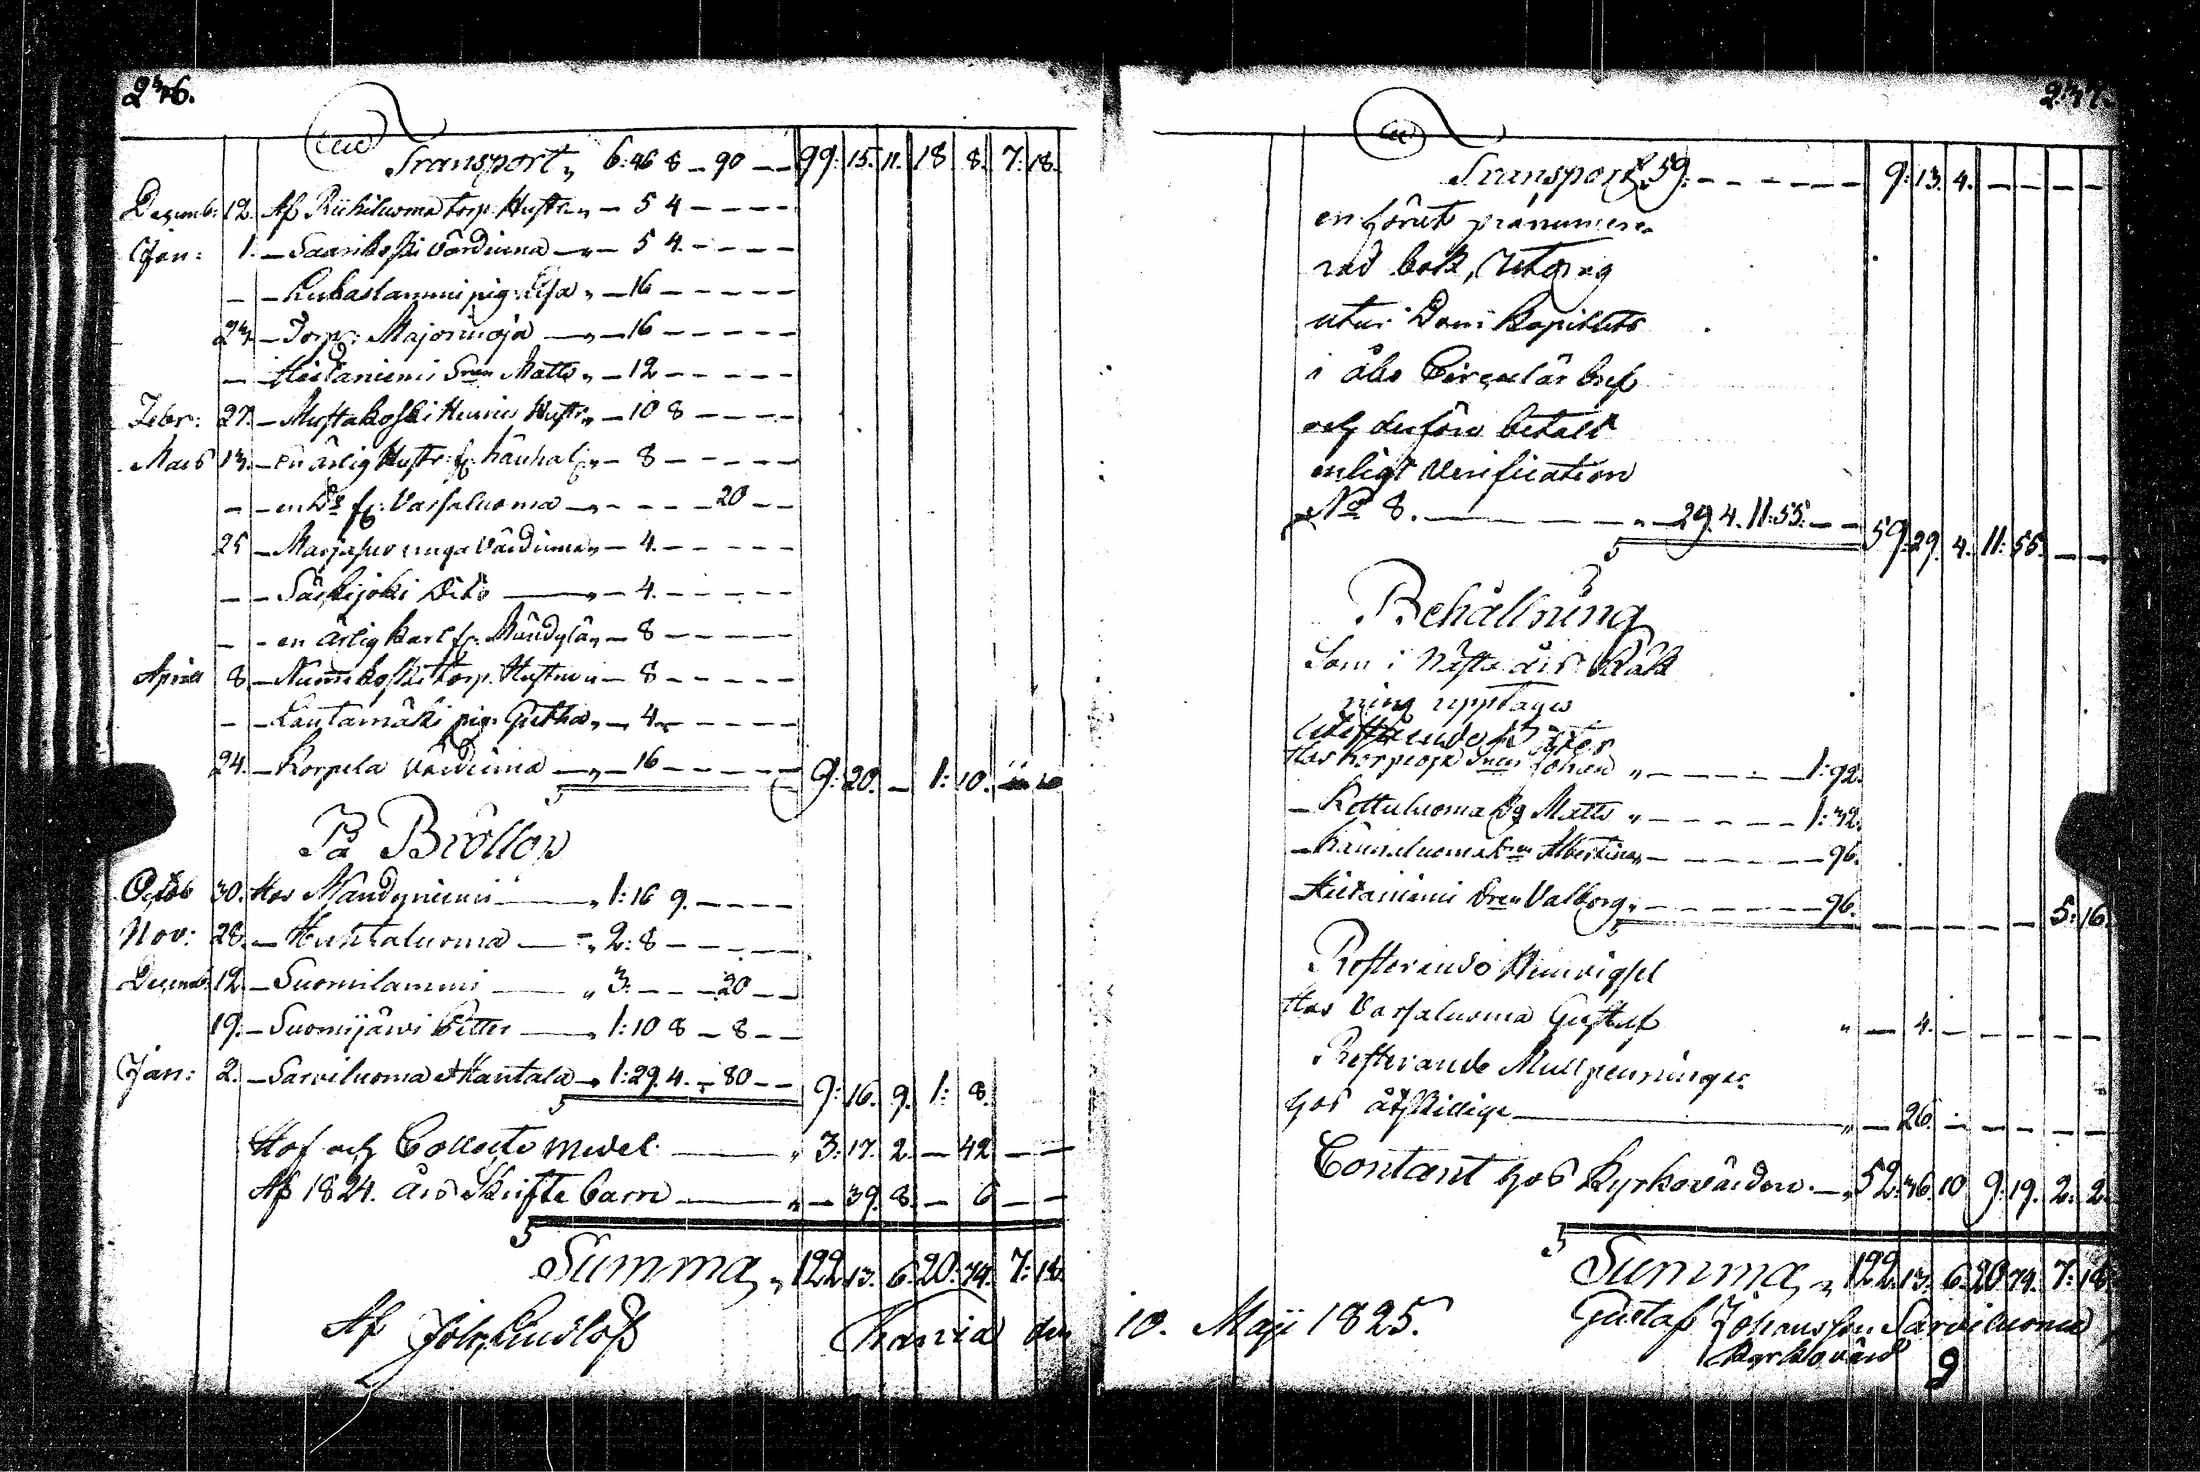 236.
Transport „ 6:46 8 – 90 — 99: 15. 11. 18 8. 7: 18.
Decemb: 12. Af Riihiluoma torp. Hustru „ – 5 4 – – – –
Jan: 1. – Saarikoski Värdinna – „ – 5 4. – – – –
– – Lubaslammi pig: Lisa „ – 16 – – – – –
23. – Torp: Majorinoja – „ – 16 – – – – –
– – Hietaniemi Sven Matts „ – 12 – – – – –
Febr: 27. – Mustakoski Hustr „ – 10 8 – – – –
Mars 13. – En ärlig Hustr: fr: – 8 – – – – –
– – en Do fr: Varsaluoma – „ – – – – 20 – –
25 – Värdinna „ – 4. – – – – –
– – Säskijoki Dito – „ – 4. – – – – –
– – en ärlig Karl fr: Mändylä „ – 8 – – – – –
April 8. – Nummikoski torp. Hustru „ – 8 – – – – –
– – Lautamäki pig: Gretha „ – 4 – – – – –
24. – Korpela Värdinna – „ – 16 – – – – – 9: 20. – 1: 10.
På Bröllop
Octob 30. Hos Mändyniemi – „ 1:16 9. – – – –
Nov: 28. – Huhtaluoma – „ 2: 8 – – – – –
Decemb: 12. – Suomilammi – „ 3: – – – 20 – –
19. – Suomijärvi Petter – „ 1:10 8 – 8 – –
Jan: 2. – Sarviluoma & Hantala „ 1:29. 4. – 80 – – 9: 16. 9. 1: 8.
Hof och Collecte medel – „ 3: 17. 2. – 42 – –
Af 1824. års Skrifte barn – „ – 39. 8. – 6 – –
Summa „ 122. 13. 6. 20: 74. 7: 18.
Af Joh. Lindlöf
237.
Transport „ 59. – – – – – – 9: 13. 4. – – – –
en förut pränumere-
rad bok, Utdrag
utur Dom Kapitlets
i åbo Circulär bref
och derföre betalt
enligt Verification
No 8. – – – „ – 29. 4. 11:55. – – 59. 29. 4. 11: 55. – –
Behållning
Som i nästa års Räk
ning upptages
Hos Korpioja Sven Johan „ – – – – – 1:92.
– Kottuluoma Dg Matts „ – – – – – 1:32.
– Albertina „ – – – – – 96.
Hietaniemi Dren Valborg „ – – – – – 96. – – – – – 5: 16.
Resterande
Hos Varsaluoma Gustaf „ – 4. – – – – –
Resterande Mullpenningar
hos åtskillige – „ – 26. – – – – –
Contant hos Kyrkovärden – „ 52: 36. 10 9: 19. 2: 2.
Summa „ 122. 13. 6. 20 74. 7: 18.
Gustaf Johansson Sarviluoma
Kyrkovärd
den 10. Maji 1825.
9